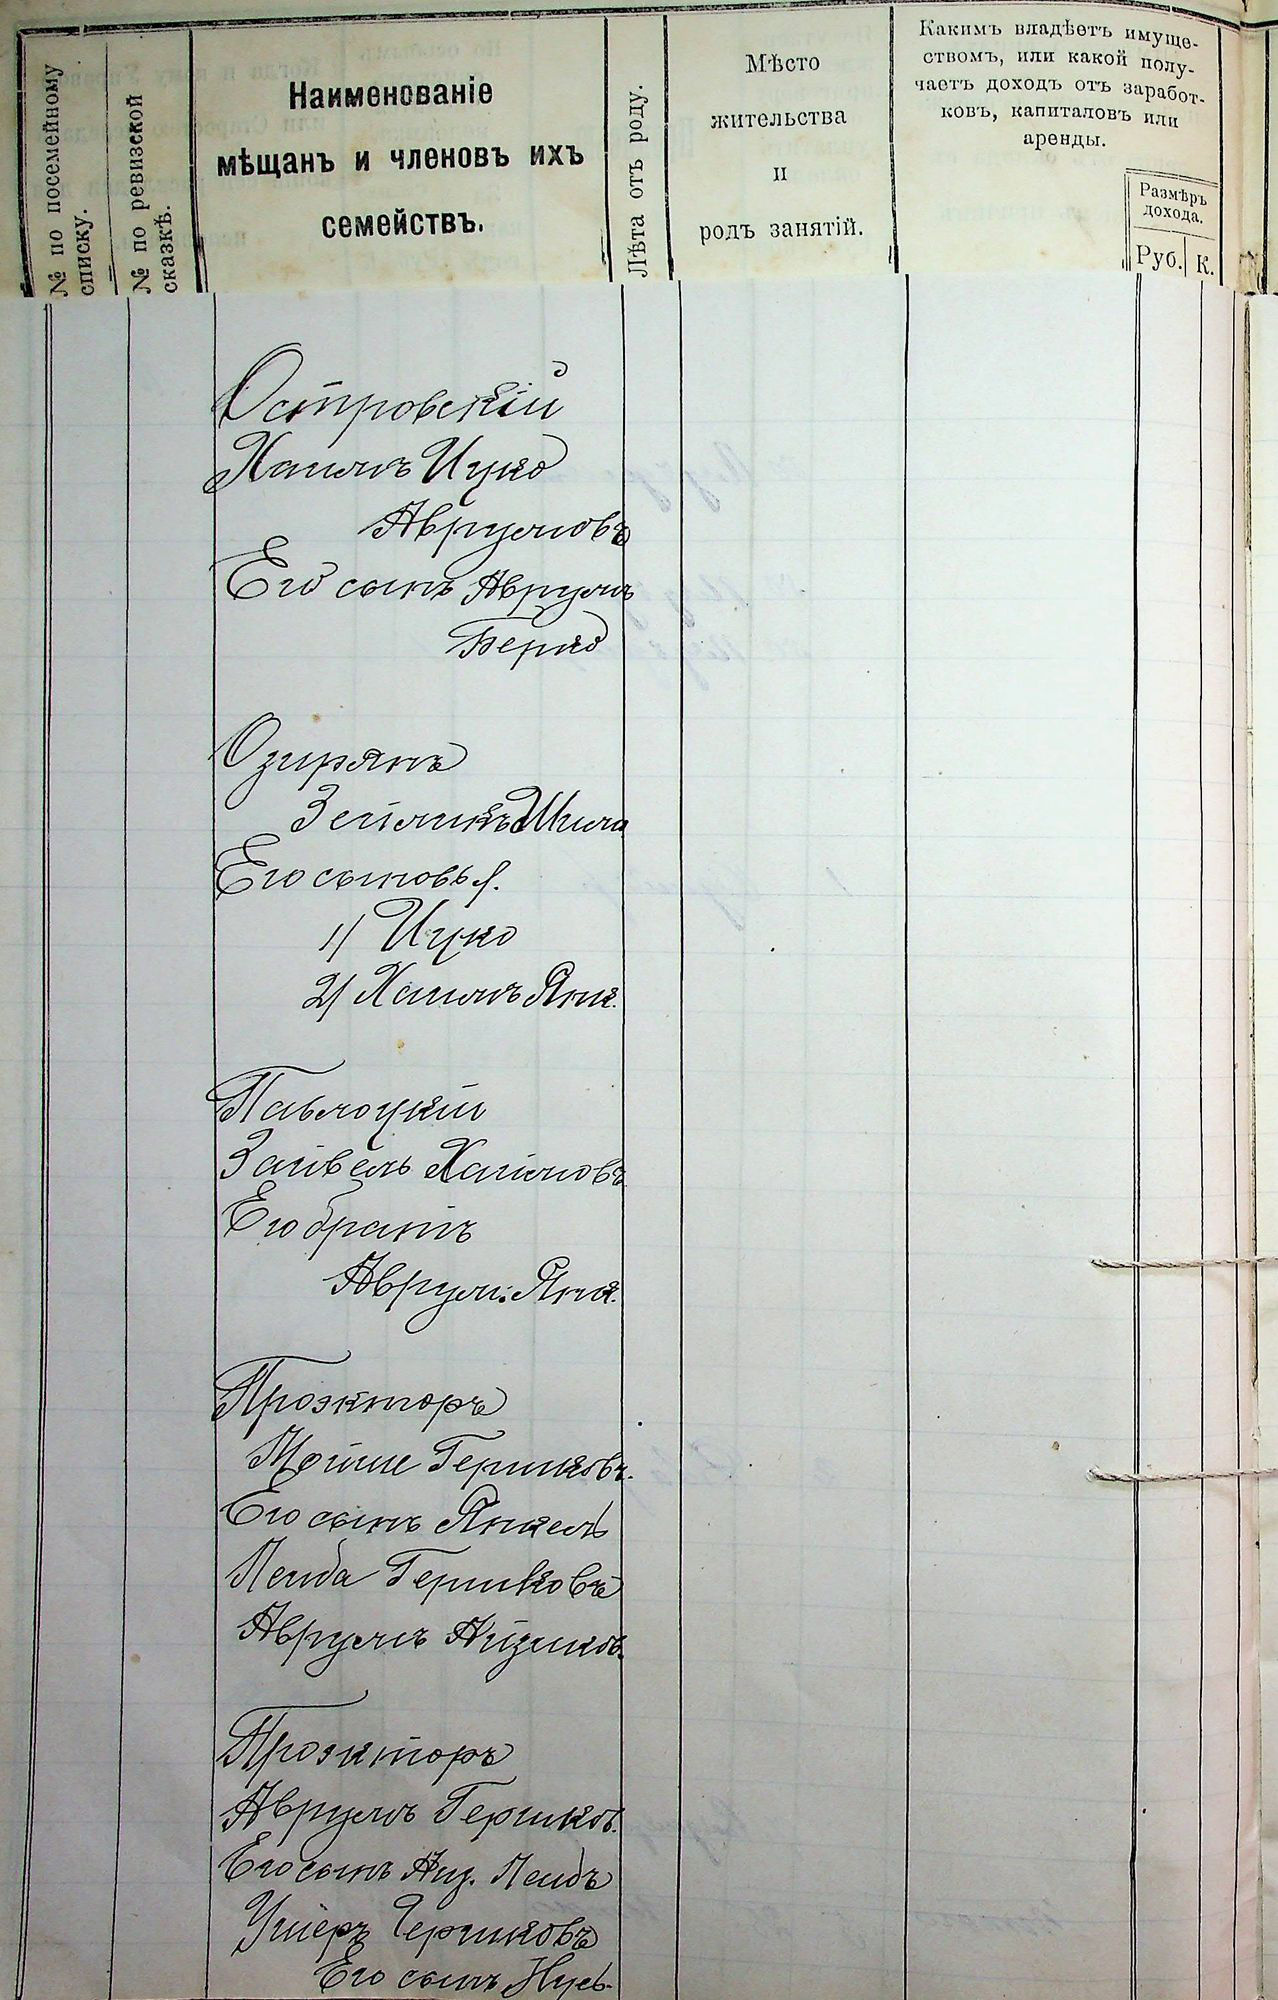 № по посемейному
списку.
№ по ревизской
сказкѣ.
Наименованіе
мѣщанъ и членовъ ихъ
семействъ.
Лѣта отъ роду.
Мѣсто
жительства
и
родъ занятій.
Какимъ владѣетъ имуще-
ствомъ, или какой полу-
чаетъ доходъ отъ заработ-
ковъ, капиталовъ или
аренды.
Размѣръ
дохода.
Руб.
К.
Островскій
Хаимъ Ицко
Аврумовъ
Его сынъ Аврумъ
Берко
Озирянъ
Зейликъ Шига
Его сыновья.
1/ Ицко
2/ Хаимъ Янк.
Павлоцкій
Зайвель Хаимовъ
Его братъ
Аврум. Янк.
Проэкторъ
Мойше Гершковъ.
Его сынъ Янкель
Лейба Гершковъ
Аврумъ Айзиков.
Проэкторъ
Аврумъ Гершков.
Его сынъ Айз. Лейбъ
Ушеръ Гершковъ
Его сынъ Нусь-